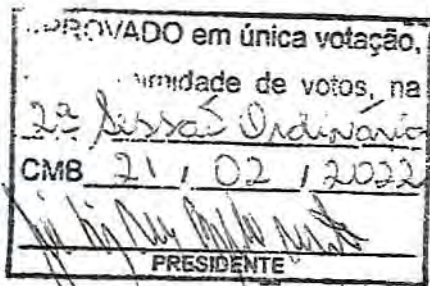 PROVADO em única votação,
midade de votos, na
2ª Sessão Ordinária
CMB 21 / 02 / 2022
PRESIDENTE